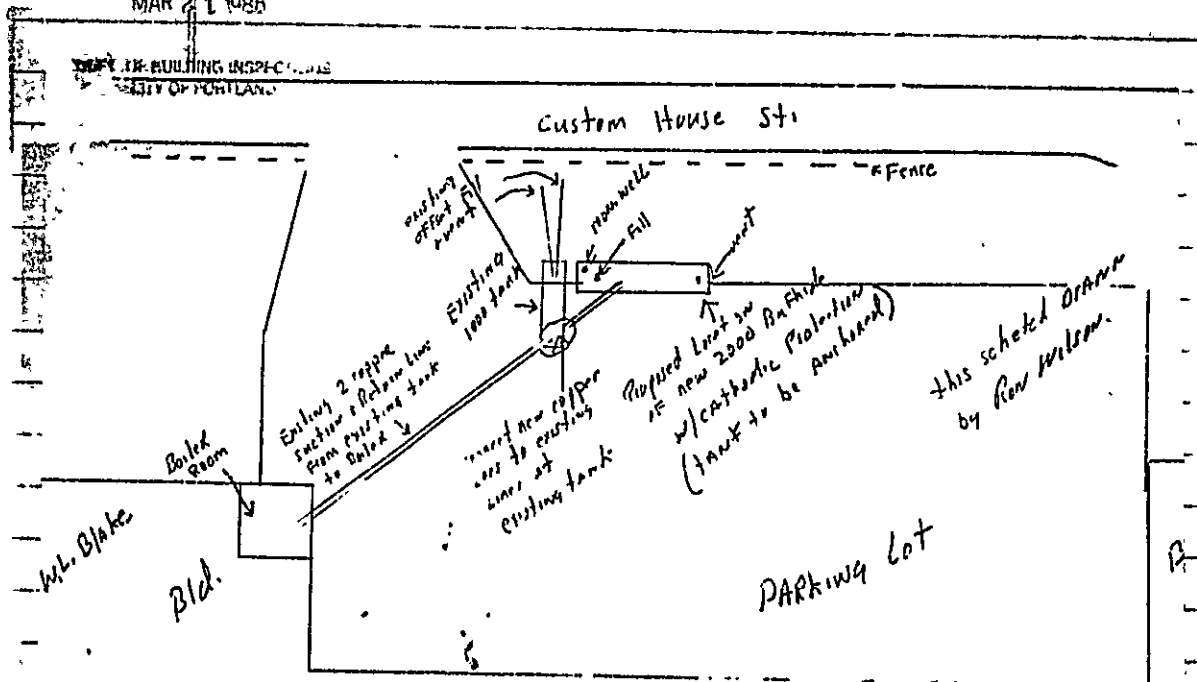 MAR 1988
DEPT. OF BUILDING INSPECTIONS
CITY OF PORTLAND
Custom House St.
Fence
existing
offset Fill
vent
Mon. well
Fill
vent
Existing
1000 tank
Existing 2 copper
suction & Return Line
From existing tank
to Boiler
Boiler
Room
new copper
Lines to existing
Lines at
existing tank
Proposed Location
of new 2000
w/Cathodic Protection
(tank to be Anchored)
this scheted DRAWN
by Ron Wilson.
W.L. Blake
Bld.
PARKING Lot